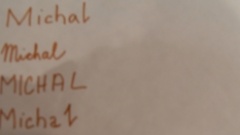 Michal
Michal
MICHAL
Michal